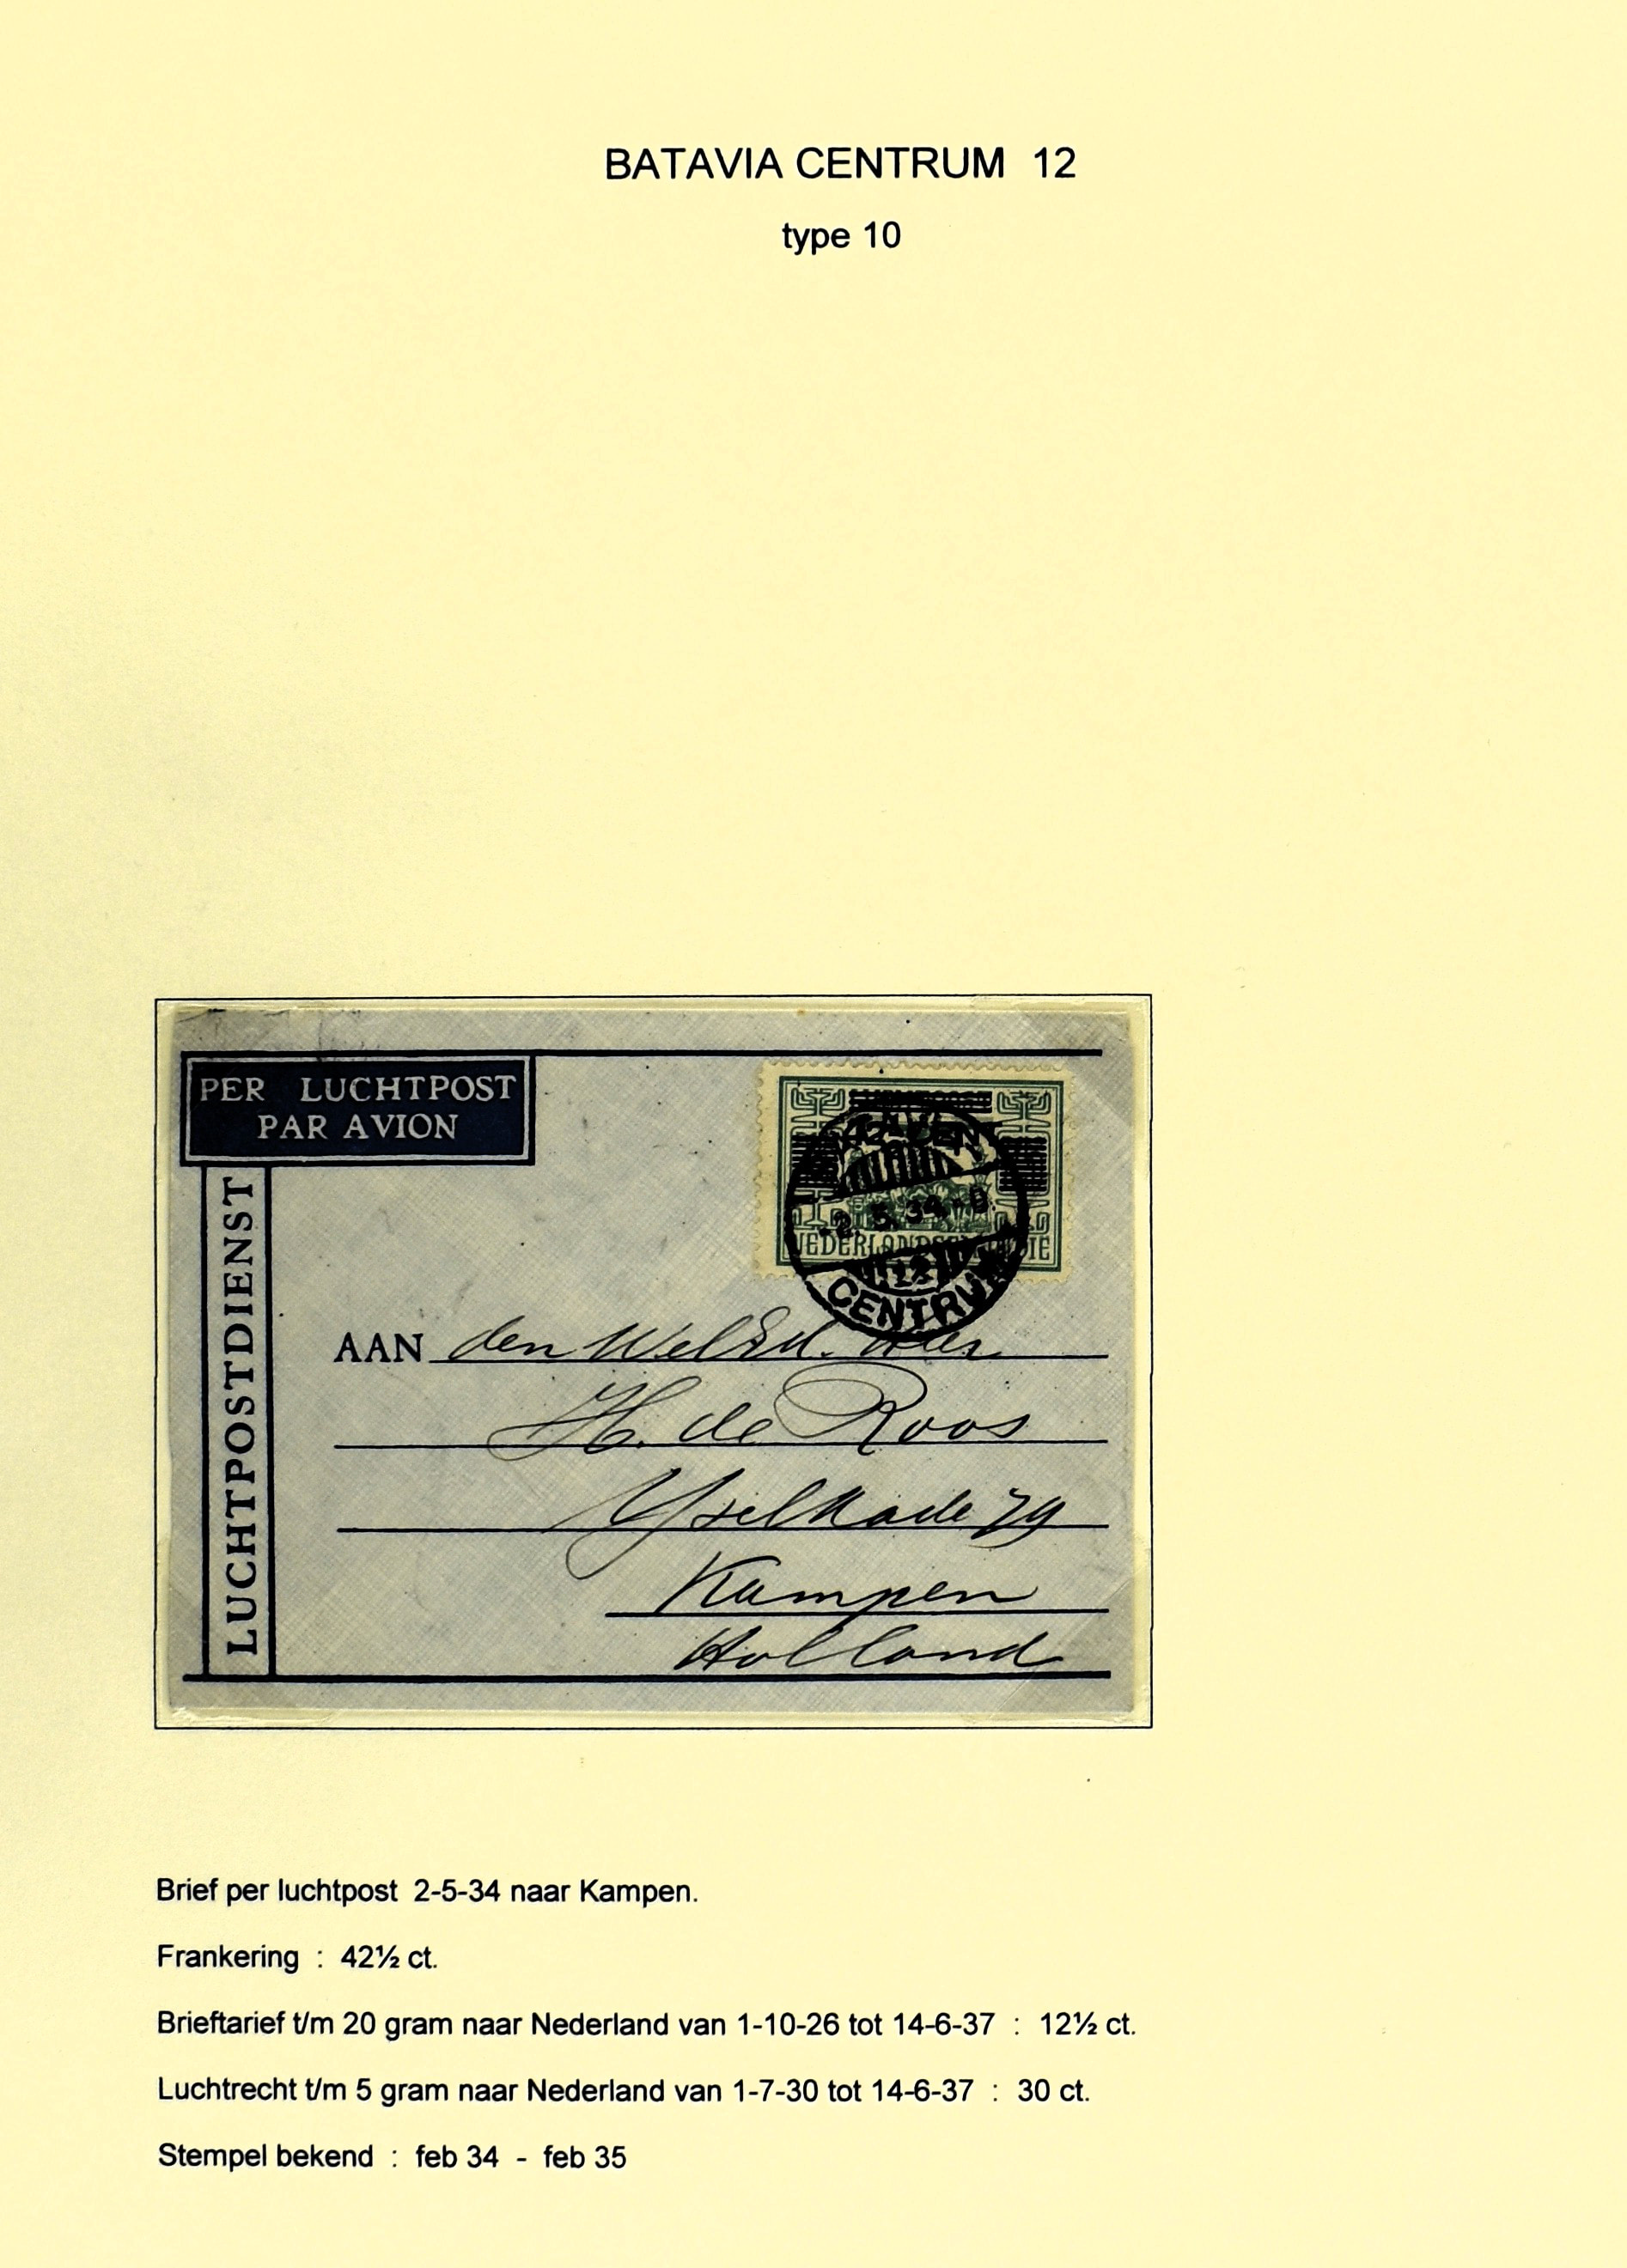 BATAVIA CENTRUM 12
type 10
PER LUCHTPOST
PAR AVION
LUCHTPOSTDIENST
CENT
-2.5.34
NEDERLANDSCH INDIE
12
CENTRUM
AAN den WelEd. Heer
H. de Roos
Yselkade 79
Kampen
Holland
Brief per luchtpost 2-5-34 naar Kampen.
Frankering : 42½ ct.
Brieftarief t/m 20 gram naar Nederland van 1-10-26 tot 14-6-37 : 12½ ct.
Luchtrecht t/m 5 gram naar Nederland van 1-7-30 tot 14-6-37 : 30 ct.
Stempel bekend : feb 34 - feb 35